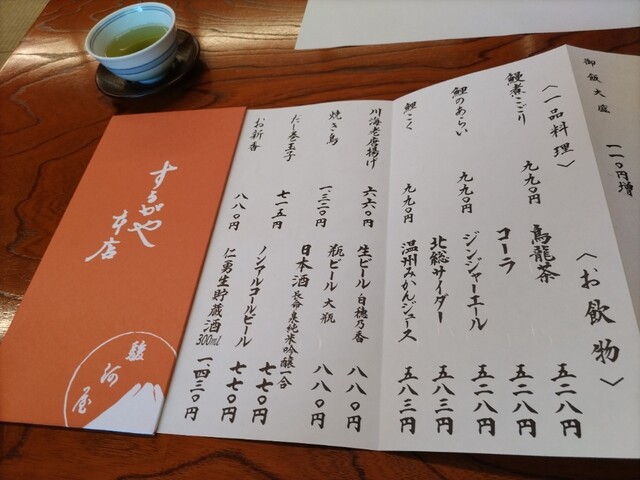 御飯大盛 一一〇円増
〈一品料理〉
鰻煮こごり 九九〇円
鯉のあらい 九九〇円
鯉こく 九九〇円
川海老唐揚げ 六六〇円
焼き鳥 一、三二〇円
だし巻玉子 七一五円
お新香 八八〇円
〈お飲物〉
烏龍茶 五二八円
コーラ 五二八円
ジンジャーエール 五二八円
北総サイダー 五八三円
温州みかんジュース 五八三円
生ビール 白穂乃香 八八〇円
瓶ビール 大瓶 八八〇円
日本酒 長命泉純米吟醸一合 七七〇円
ノンアルコールビール 七七〇円
仁勇生貯蔵酒 300ml 一、四三〇円
するがや
本店
駿河屋